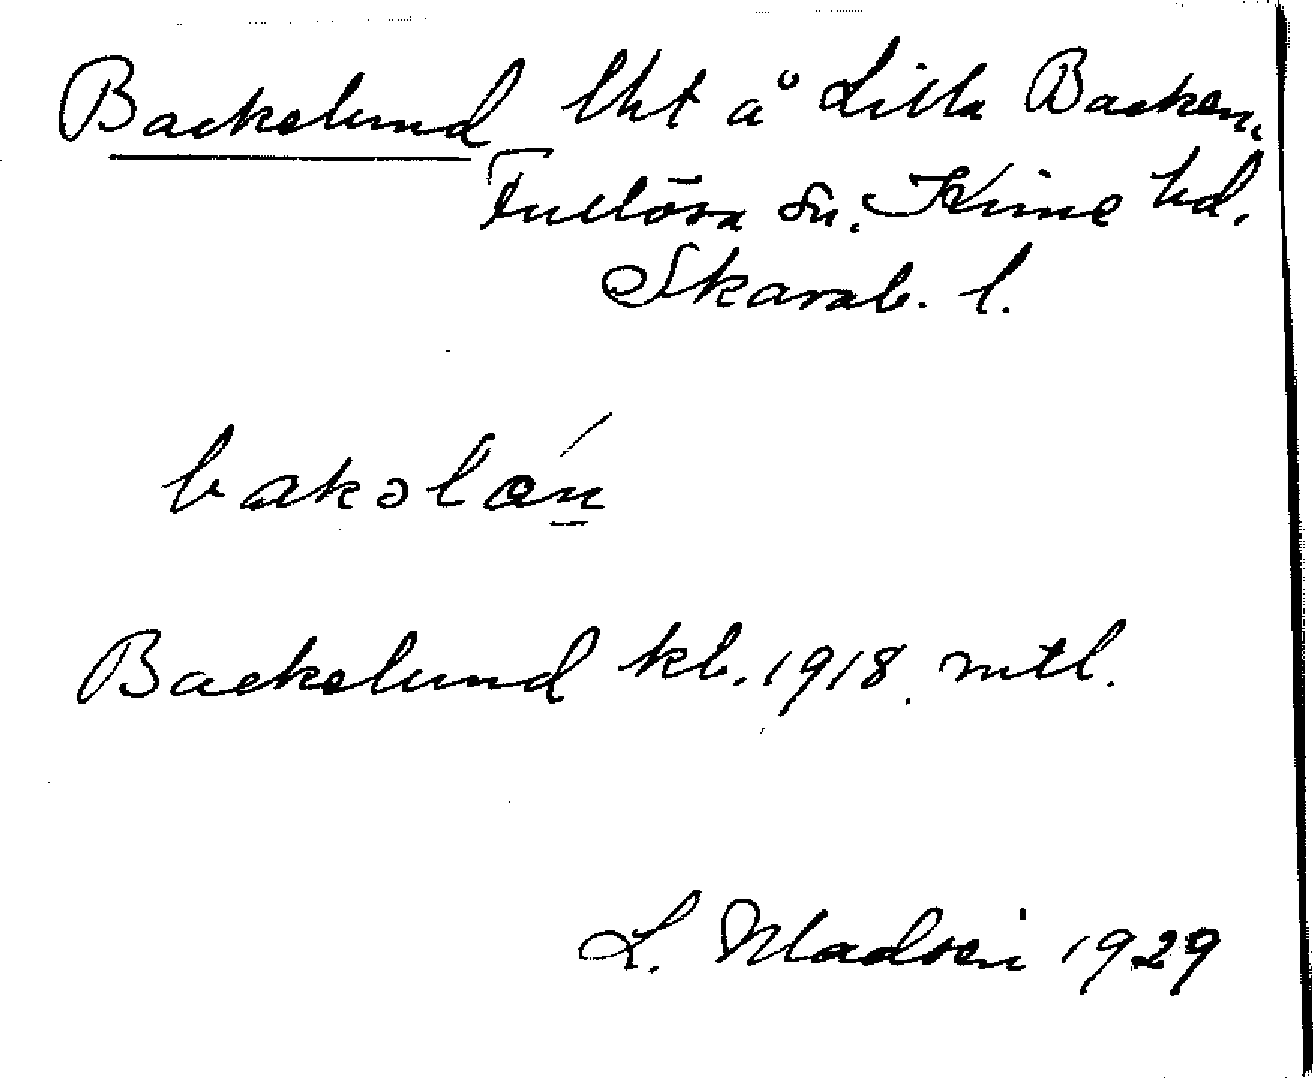 Backelund lht å Lilla Backen,
Fullösa sn. Kinne hd.
Skarab. l.
bakəlán
Backelund kb. 1918. mtl.
L. Madsen 1929